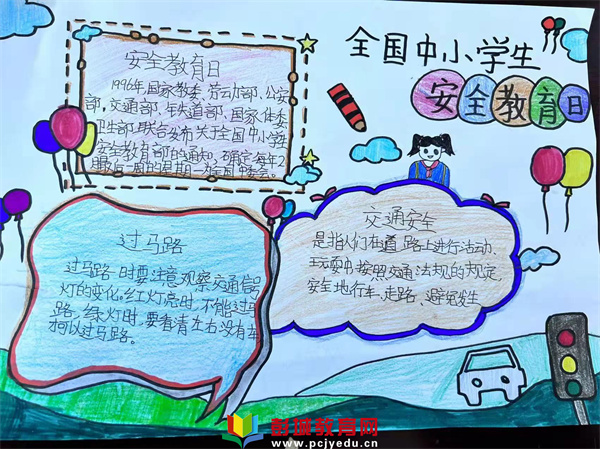 全国中小学生
安全教育日
安全教育日
1996年国家教委、劳动部、公安
部,交通部、铁道部、国家体委
卫生部,联合发布关于全国中小学生
安全教育部的通知,确定每年2
过马路
过马路时要注意观察交通信号
灯的变化。红灯亮时,不能过马
路,绿灯时,要看清左右没有车
才可以过马路。
交通安全
是指人们在道路上进行活动、
玩耍中按照交通法规的规定,
安全地行车、走路,避免发生
彭城教育网
www.pcjyedu.cn